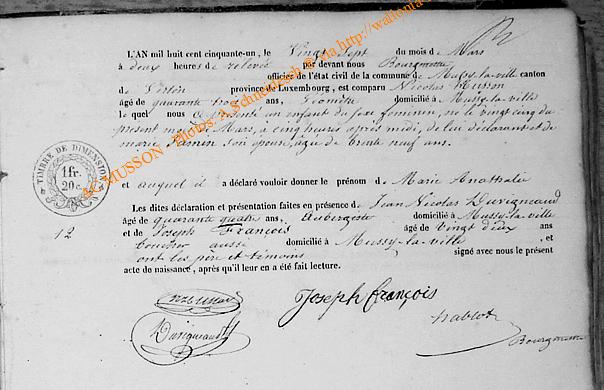 L'AN mil huit cent cinquante-un, le Vingt Sept du mois de Mars
à deux heures de relevée par devant nous Bourgmestre
officier de l'état civil de la commune de Mussy-la-ville canton
de Virton province de Luxembourg, est comparu Nicolas Musson
âgé de quarante trois ans, Géomètre domicilié à Mussy-la-ville
le quel nous a présenté un enfant du sexe feminin, né le vingt cinq du
present mois de Mars, à cinq heures après midi, de lui déclarant et de
marie son épouse, agée de trente neuf ans.
et auquel il a déclaré vouloir donner le prénom de Marie Anathalie
Les dites déclaration et présentation faites en présence de Jean Nicolas Duvigneaud
âgé de quarante quatre ans, Aubergiste domicilié à Mussy-la-ville
12 et de Joseph François âgé de vingt deux ans
boucher aussi domicilié à Mussy-la-ville, et
ont les père et témoins signé avec nous le présent
acte de naissance, après qu'il leur en a été fait lecture.
TIMBRE DE DIMENSION
1 fr.
20 c.
AC MUSSON - Photos: A. Schneidesch & via http://wallonia
Joseph françois
Duvigneaud
Bourgmestre